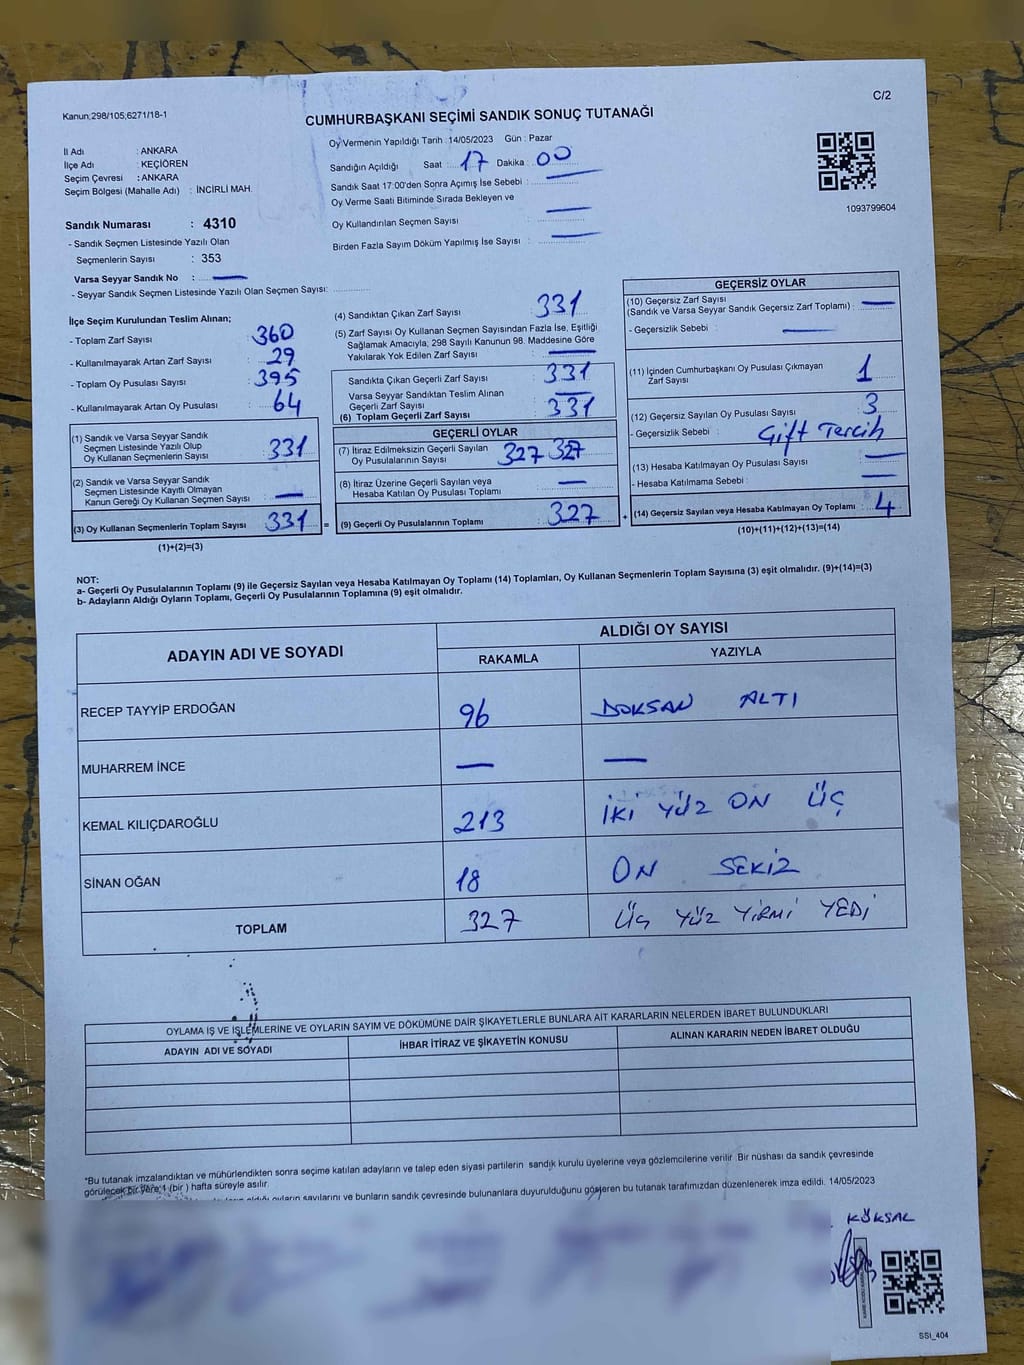 Kanun;298/105;6271/18-1
C/2
CUMHURBAŞKANI SEÇİMİ SANDIK SONUÇ TUTANAĞI
İl Adı : ANKARA
İlçe Adı : KEÇİÖREN
Seçim Çevresi : ANKARA
Seçim Bölgesi (Mahalle Adı) : İNCİRLİ MAH.
Sandık Numarası : 4310
- Sandık Seçmen Listesinde Yazılı Olan
Seçmenlerin Sayısı : 353
Varsa Seyyar Sandık No : —
- Seyyar Sandık Seçmen Listesinde Yazılı Olan Seçmen Sayısı:
Oy Vermenin Yapıldığı Tarih : 14/05/2023 Gün : Pazar
Sandığın Açıldığı Saat : 17 Dakika : 00
Sandık Saat 17:00'den Sonra Açımış İse Sebebi : —
Oy Verme Saati Bitiminde Sırada Bekleyen ve
Oy Kullandırılan Seçmen Sayısı : —
Birden Fazla Sayım Döküm Yapılmış İse Sayısı : —
1093799604
İlçe Seçim Kurulundan Teslim Alınan;
- Toplam Zarf Sayısı : 360
- Kullanılmayarak Artan Zarf Sayısı : 29
- Toplam Oy Pusulası Sayısı : 395
- Kullanılmayarak Artan Oy Pusulası : 64
(1) Sandık ve Varsa Seyyar Sandık
Seçmen Listesinde Yazılı Olup
Oy Kullanan Seçmenlerin Sayısı : 331
(2) Sandık ve Varsa Seyyar Sandık
Seçmen Listesinde Kayıtlı Olmayan
Kanun Gereği Oy Kullanan Seçmen Sayısı : —
(3) Oy Kullanan Seçmenlerin Toplam Sayısı : 331 =
(1)+(2)=(3)
(4) Sandıktan Çıkan Zarf Sayısı : 331
(5) Zarf Sayısı Oy Kullanan Seçmen Sayısından Fazla İse, Eşitliği
Sağlamak Amacıyla, 298 Sayılı Kanunun 98. Maddesine Göre
Yakılarak Yok Edilen Zarf Sayısı : —
Sandıkta Çıkan Geçerli Zarf Sayısı : 331
Varsa Seyyar Sandıktan Teslim Alınan
Geçerli Zarf Sayısı : —
(6) Toplam Geçerli Zarf Sayısı : 331
GEÇERLİ OYLAR
(7) İtiraz Edilmeksizin Geçerli Sayılan
Oy Pusulalarının Sayısı : 327 327
(8) İtiraz Üzerine Geçerli Sayılan veya
Hesaba Katılan Oy Pusulası Toplamı : —
(9) Geçerli Oy Pusulalarının Toplamı : 327 +
GEÇERSİZ OYLAR
(10) Geçersiz Zarf Sayısı
(Sandık ve Varsa Seyyar Sandık Geçersiz Zarf Toplamı) : —
- Geçersizlik Sebebi : —
(11) İçinden Cumhurbaşkanı Oy Pusulası Çıkmayan
Zarf Sayısı : 1
(12) Geçersiz Sayılan Oy Pusulası Sayısı : 3
- Geçersizlik Sebebi : Çift Tercih
(13) Hesaba Katılmayan Oy Pusulası Sayısı : —
- Hesaba Katılmama Sebebi : —
(14) Geçersiz Sayılan veya Hesaba Katılmayan Oy Toplamı : 4
(10)+(11)+(12)+(13)=(14)
NOT:
a- Geçerli Oy Pusulalarının Toplamı (9) ile Geçersiz Sayılan veya Hesaba Katılmayan Oy Toplamı (14) Toplamları, Oy Kullanan Seçmenlerin Toplam Sayısına (3) eşit olmalıdır. (9)+(14)=(3)
b- Adayların Aldığı Oyların Toplamı, Geçerli Oy Pusulalarının Toplamına (9) eşit olmalıdır.
ADAYIN ADI VE SOYADI
ALDIĞI OY SAYISI
RAKAMLA YAZIYLA
RECEP TAYYİP ERDOĞAN 96 DOKSAN ALTI
MUHARREM İNCE — —
KEMAL KILIÇDAROĞLU 213 İKİ YÜZ ON ÜÇ
SİNAN OĞAN 18 ON SEKİZ
TOPLAM 327 ÜÇ YÜZ YİRMİ YEDİ
OYLAMA İŞ VE İŞLEMLERİNE VE OYLARIN SAYIM VE DÖKÜMÜNE DAİR ŞİKAYETLERLE BUNLARA AİT KARARLARIN NELERDEN İBARET BULUNDUKLARI
ADAYIN ADI VE SOYADI İHBAR İTİRAZ VE ŞİKAYETİN KONUSU ALINAN KARARIN NEDEN İBARET OLDUĞU
*Bu tutanak imzalandıktan ve mühürlendikten sonra seçime katılan adayların ve talep eden siyasi partilerin sandık kurulu üyelerine veya gözlemcilerine verilir. Bir nüshası da sandık çevresinde
görülecek bir yere 1 (bir ) hafta süreyle asılır.
aldığı oyların sayılarını ve bunların sandık çevresinde bulunanlara duyurulduğunu gösteren bu tutanak tarafımızdan düzenlenerek imza edildi. 14/05/2023
KÖKSAL
SSI_404